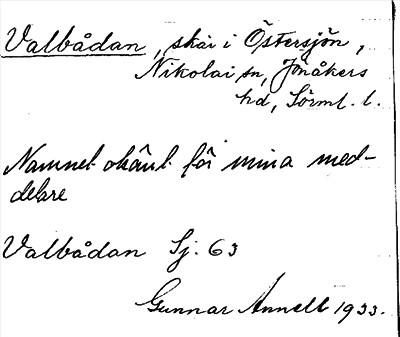 Valbådan, skär i Östersjön,
Nikolai sn, Jönåkers
hd, Sörml. l.
Namnet okänt för mina med-
delare
Valbådan Sj. 63
Gunnar Annell 1933.